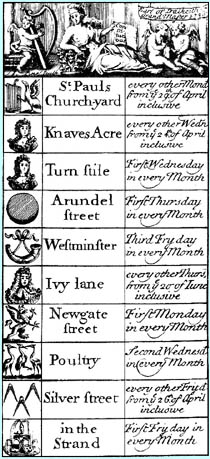 St. Pauls
Churchyard
every other Mond
from ye 29 of April
inclusive
Knaves Acre
every other Wedn.
from ye 24 of April
inclusive
Turn stile
First Wednesday
in every Month
Arundel
street
First Thursday
in every Month
Westminster
Third Fryday
in every Month
Ivy lane
every other Thurs,
from ye 20 of June
inclusive
Newgate
street
First Monday
in every Month
Poultry
Second Wednesd.
in every Month
Silver street
every other Fryd
from ye 26 of April
inclusive
in the
Strand
First Fryday in
every Month